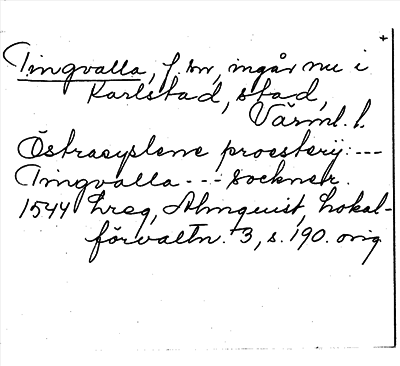 +
Tingvalla, f. sn, ingår nu i
Karlstad, stad,
Värml. l.
Östrasyslene proesterij: ---
Tingvalla --- sockner.
1544 hreg, Almquist, Lokal-
förvaltn. 3, s. 190. orig